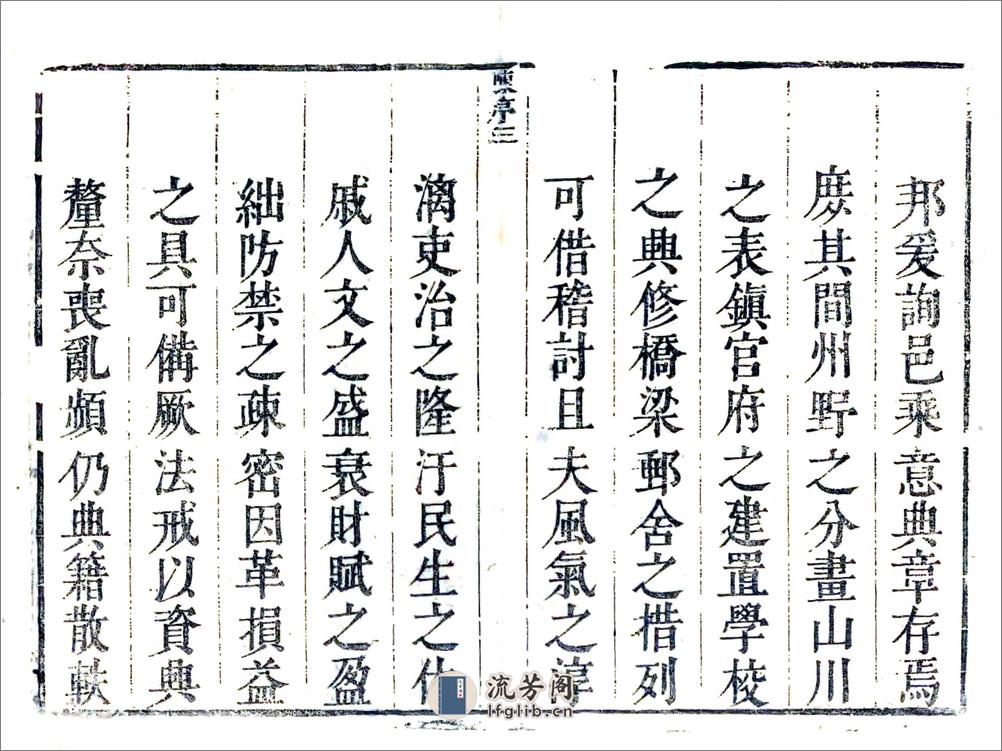 邦爰詢邑乘意典章存焉
庶其間州野之分畫山川
之表鎮官府之建置學校
之興修橋梁郵舍之措列
可借稽討且夫風氣之淳
序三
漓吏治之隆汙民生之休
戚人文之盛衰財賦之盈
絀防禁之疎密因革損益
之具可備厥法戒以資典
釐奈喪亂頻仍典籍散軼
流芳阁
lfglib.cn